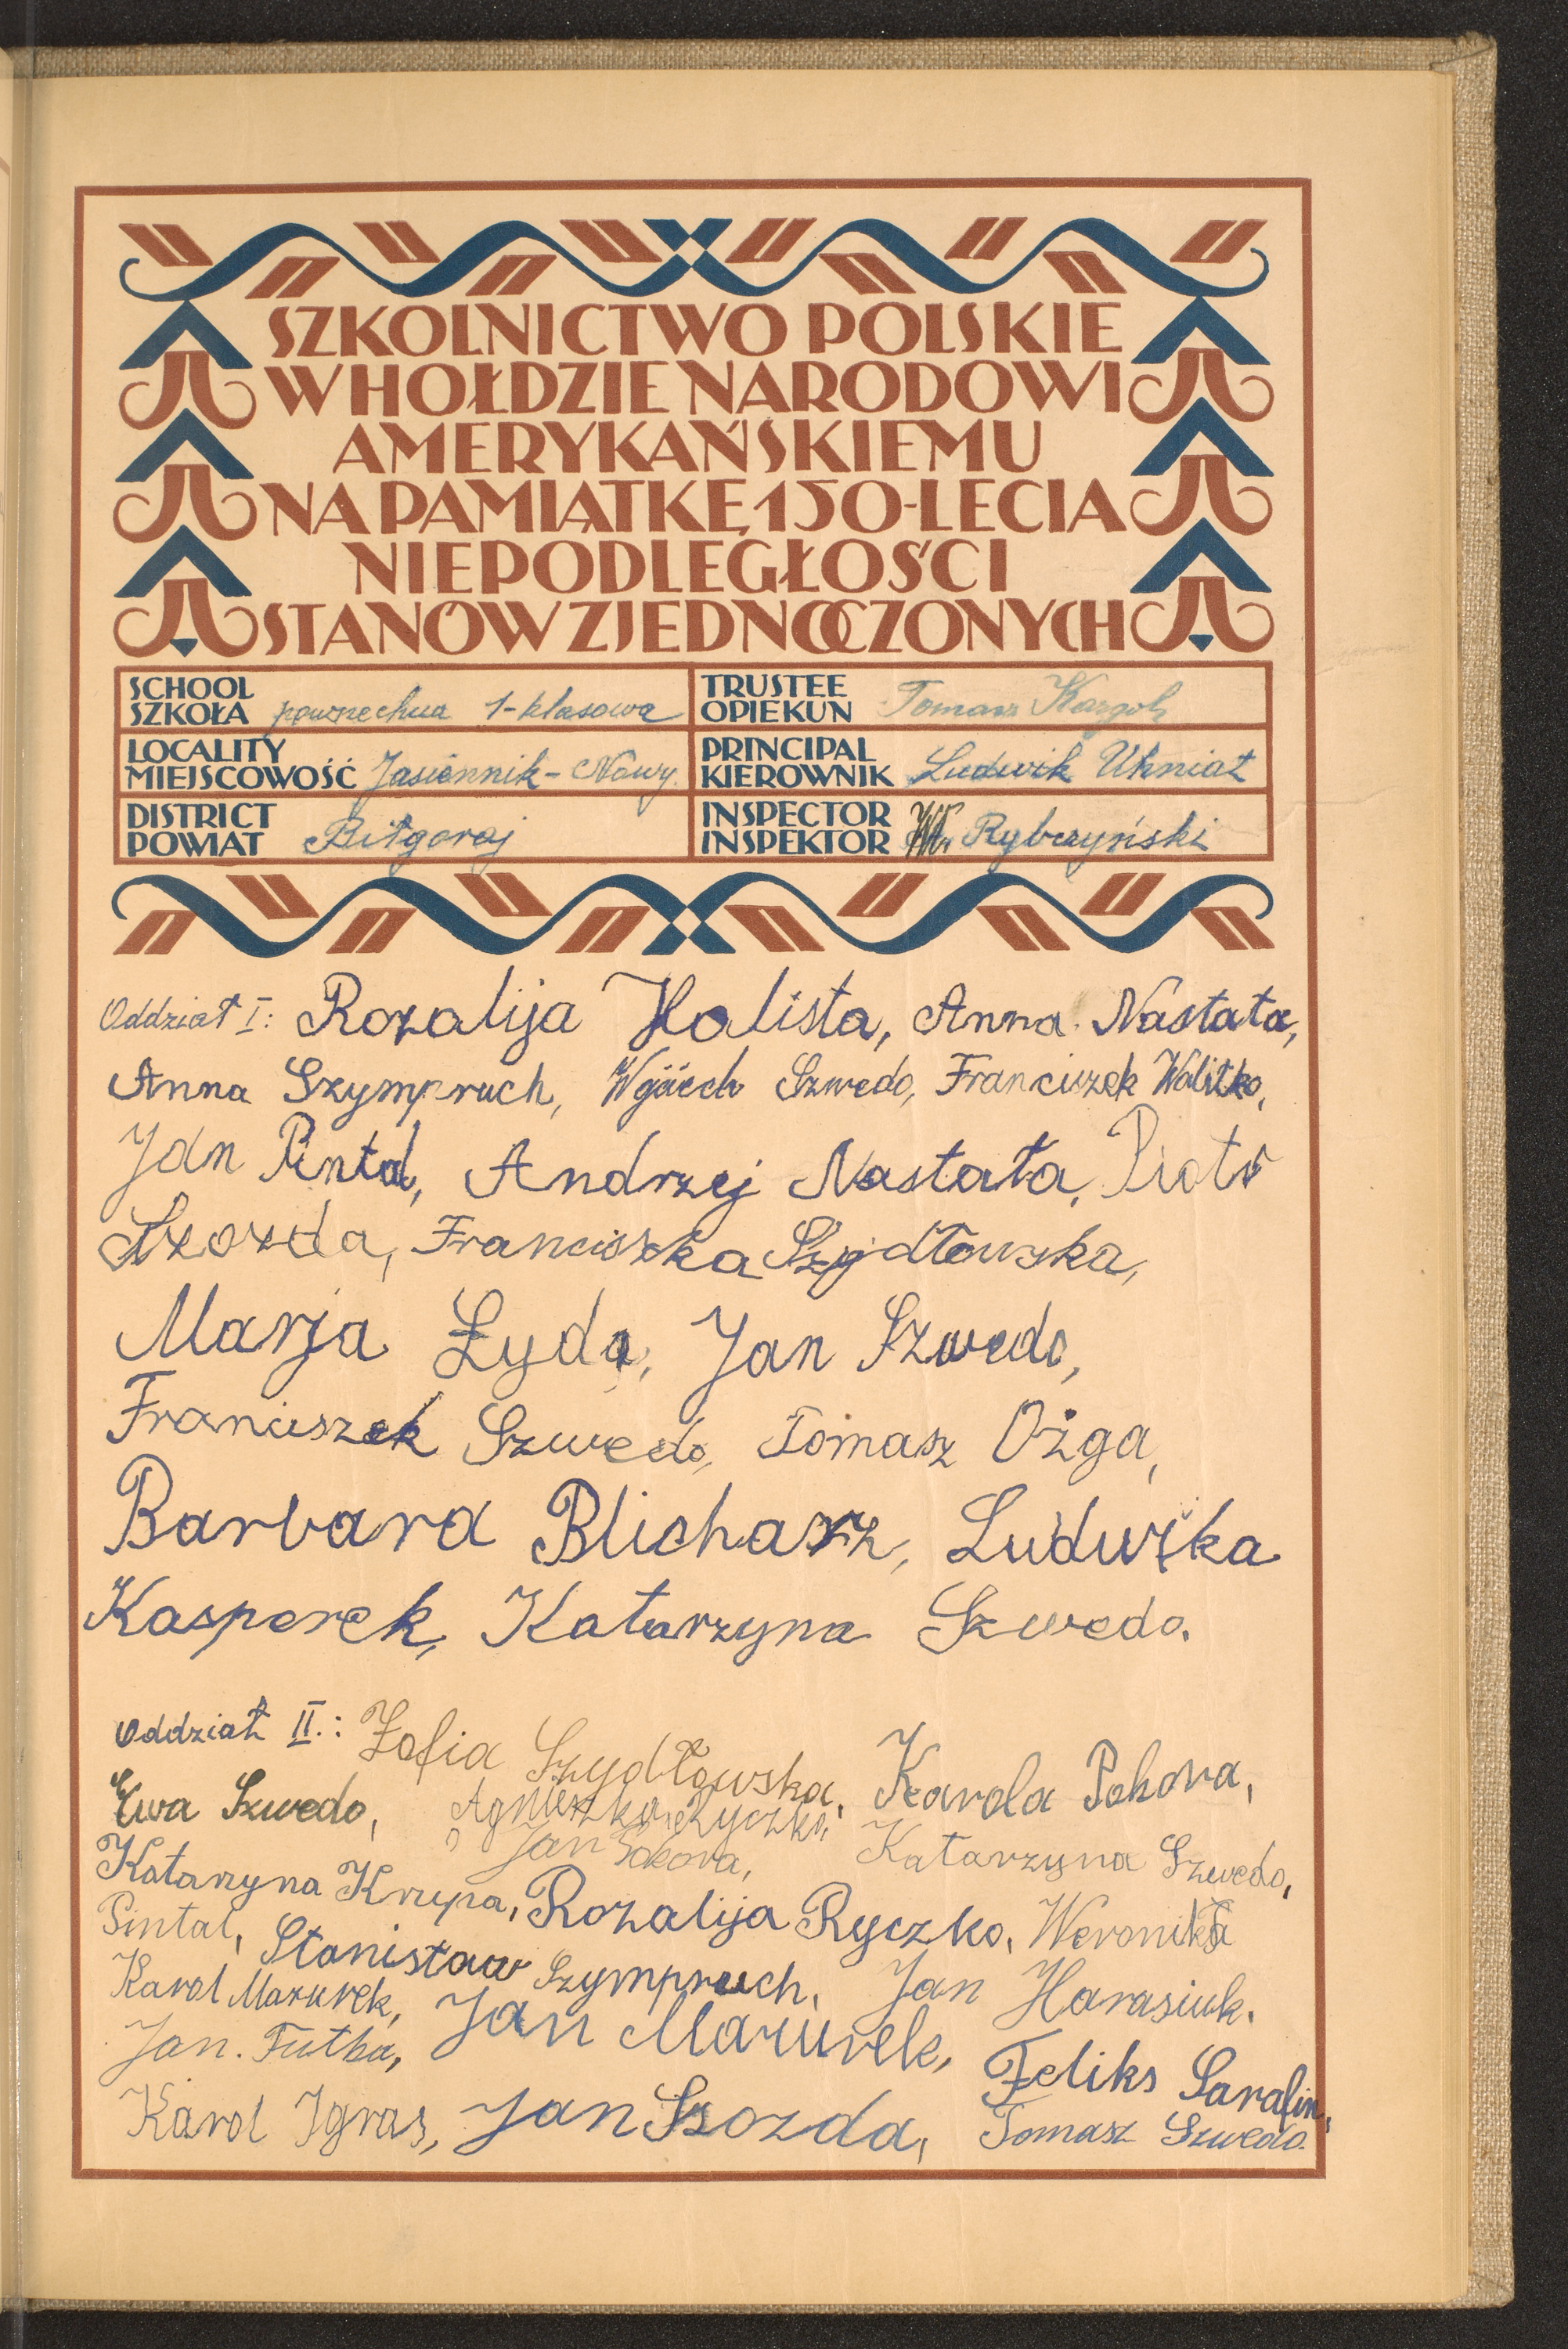 SZKOLNICTWO POLSKIE
W HOŁDZIE NARODOWI
AMERYKAŃSKIEMU
NA PAMIĄTKĘ 150-LECIA
NIEPODLEGŁOŚCI
STANÓW ZJEDNOCZONYCH
SCHOOL
SZKOŁA powszechna 1-klasowa
TRUSTEE
OPIEKUN Tomasz
LOCALITY
MIEJSCOWOŚĆ Jasiennik-Nowy.
PRINCIPAL
KIEROWNIK Ludwik Uhniat
DISTRICT
POWIAT Biłgoraj
INSPECTOR
INSPEKTOR Wł. Rybczyński
Oddział I: Rozalija Halista, Anna Nastała,
Anna Szympruch, Szwedo, Franciszek Walitko,
Jan Pintal, Andrzej Nastała, Piotr
Szozda, Franciszka Szydłowska,
Marja Łyda, Jan Szwedo,
Franciszek Szwedo, Tomasz Ożga,
Barbara Blicharz, Ludwika
Kasperek, Katarzyna Szwedo.
Oddział II.: Zofia Szydłowska, Karola
Ewa Szwedo, Agnieszka Ryczko,
Jan Katarzyna Szwedo,
Katarzyna Krupa, Rozalija Ryczko, Weronika
Pintal, Stanisław Szympruch, Jan Harasiuk.
Karol Mazurek, Jan Mazurek,
Jan. Futba, Feliks Sarafin,
Karol Igras, Jan Szozda, Tomasz Szwedo.